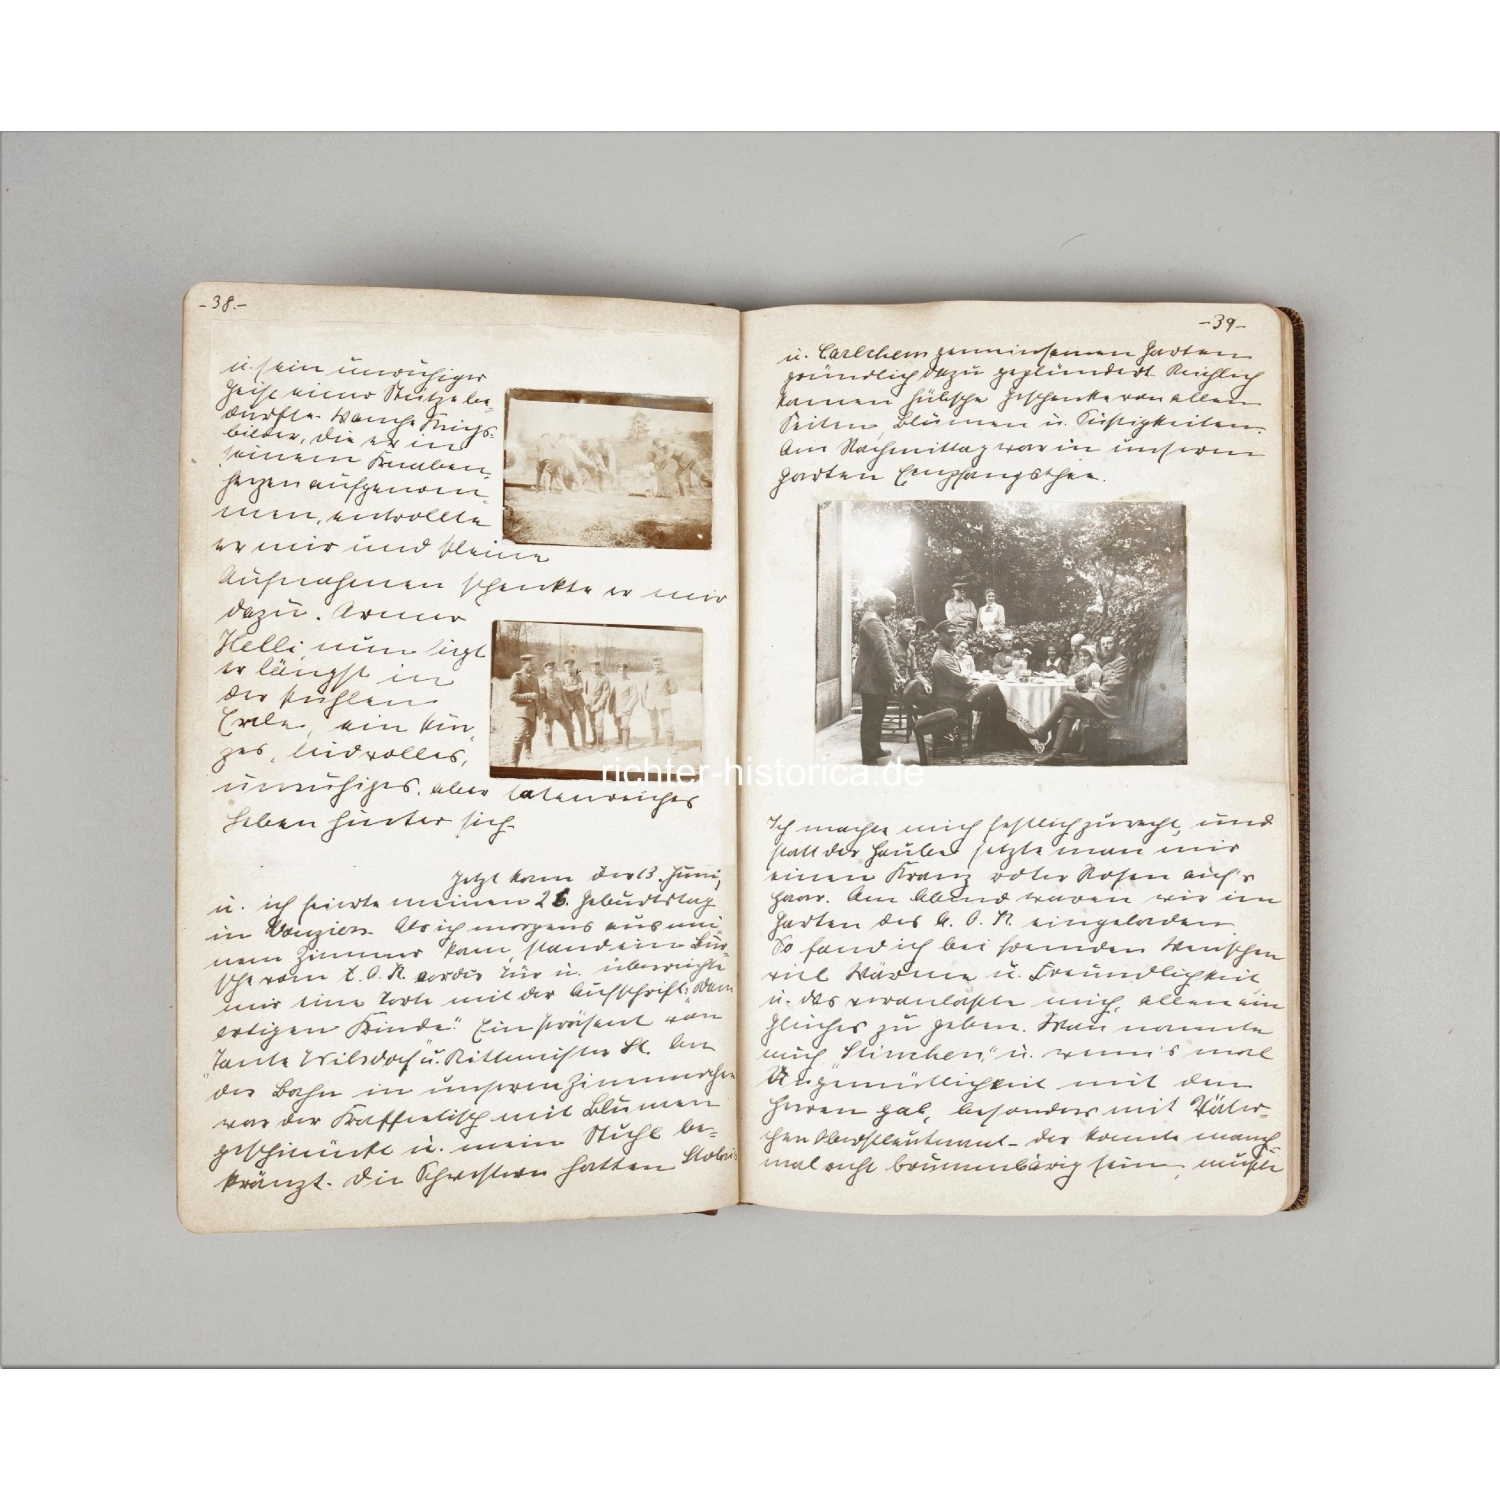 -38.-
u. sein unruhiger
Geist einer Stütze be-
durfte. Manche Kriegs-
bilder, die er in
seinem Knaben-
herzen aufgenom-
men, entrollte
er mir und kleine
Aufnahmen schenkte er mir
dazu. Armer
Helli nun liegt
er längst in
der kühlen
Erde, ein kur-
zes, leidvolles,
unruhiges, aber tatenreiches
Leben hinter sich.
Jetzt kam der 13. Juni,
u. ich feierte meinen 26. Geburtstag
in Vouziers. Als ich morgens aus mei-
nem Zimmer kam, stand ein Bur-
sche vom A. O. K. vor der Tür u. überreichte
mir eine Torte mit der Aufschrift: "Dem
artigen Kinde." Ein Präsent von
"Tante Wilsdorf" u. Rittmeister St. An
der Bahn in unserem Zimmerchen
war der Kaffeetisch mit Blumen
geschmückt u. mein Stuhl be-
kränzt. Die Schwestern hatten
-39-
u. Carlchens gemeinsamen Garten
gründlich dazu geplündert. Reichlich
kamen hübsche Geschenke von allen
Seiten, Blumen u. Süßigkeiten.
Am Nachmittag war in unserm
Garten Empfangsthee.
richter-historica.de
Ich machte mich festlich zurecht, und
statt der Haube setzte man mir
einen Kranz roter Rosen auf's
Haar. Am Abend waren wir im
Garten des A. O. K. eingeladen.
So fand ich bei fremden Menschen
viel Wärme u. Freundlichkeit
u. das veranlaßte mich, allen ein
Gleiches zu geben. Man nannte
mich "Stinchen," u. wenn's mal
Ungemütlichkeit mit den
Herren gab, besonders mit Väter-
chen Oberstleutnant - der konnte manch-
mal recht brummbärig sein, mußte